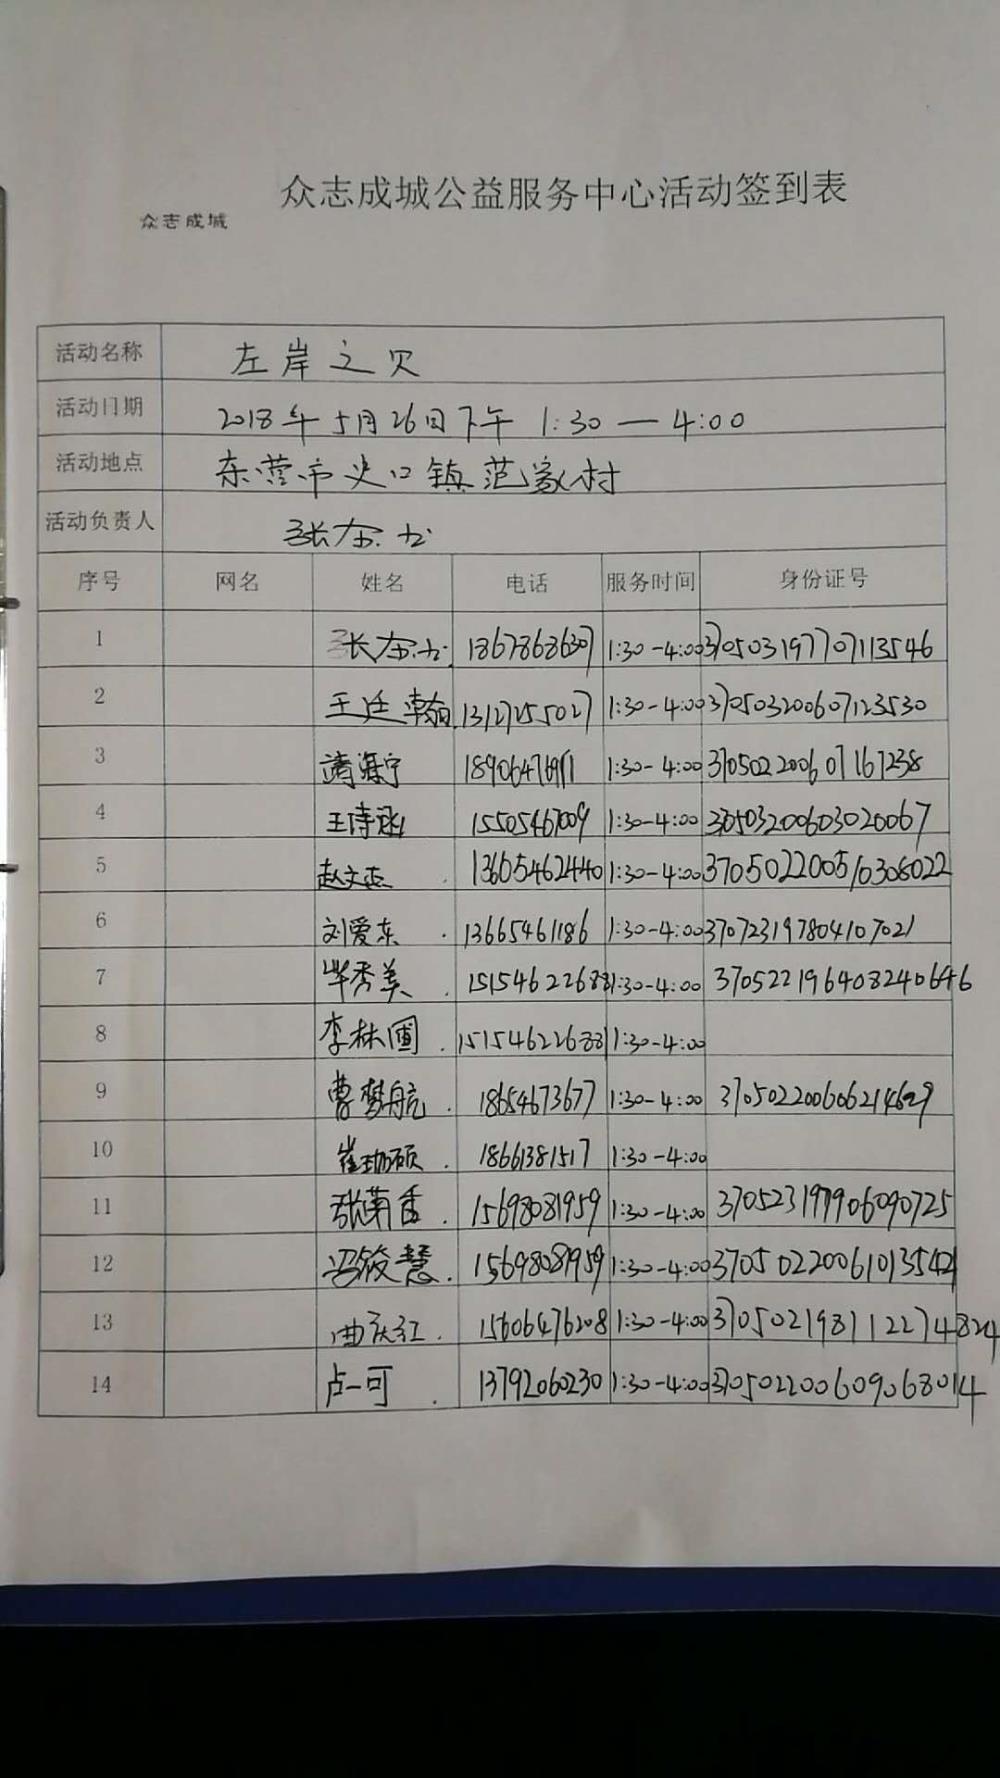 众志成城公益服务中心活动签到表
众志成城
活动名称 左岸之贝
活动日期 2018年5月26日下午 1:30—4:00
活动地点 东营市史口镇范家村
活动负责人 张
序号 网名 姓名 电话 服务时间 身份证号
1 张 18678686307 1:30-4:00 370503197707113546
2 王廷翰 13127255027 1:30-4:00 370503200607123530
3 海宁 1:30-4:00 370502200607167238
4 王诗涵 15505467009 1:30-4:00 370503200603020067
5 赵文 13605462440 1:30-4:00 370502200510308022
6 刘爱东 13665461186 1:30-4:00 370723197804107021
7 毕秀美 15154622688 1:30-4:00 370522196408240646
8 李林圃 15154622688 1:30-4:00
9 曹梦航 18654673677 1:30-4:00 370502200606214629
10 崔 硕 18661381517 1:30-4:00
11 张菊香 15698081959 1:30-4:00 370523197906090725
12 冯筱慧 15698081959 1:30-4:00 370502200610135421
13 曲庆红 15606476208 1:30-4:00 370502198112274824
14 卢一可 13792060230 1:30-4:00 370502200609068014